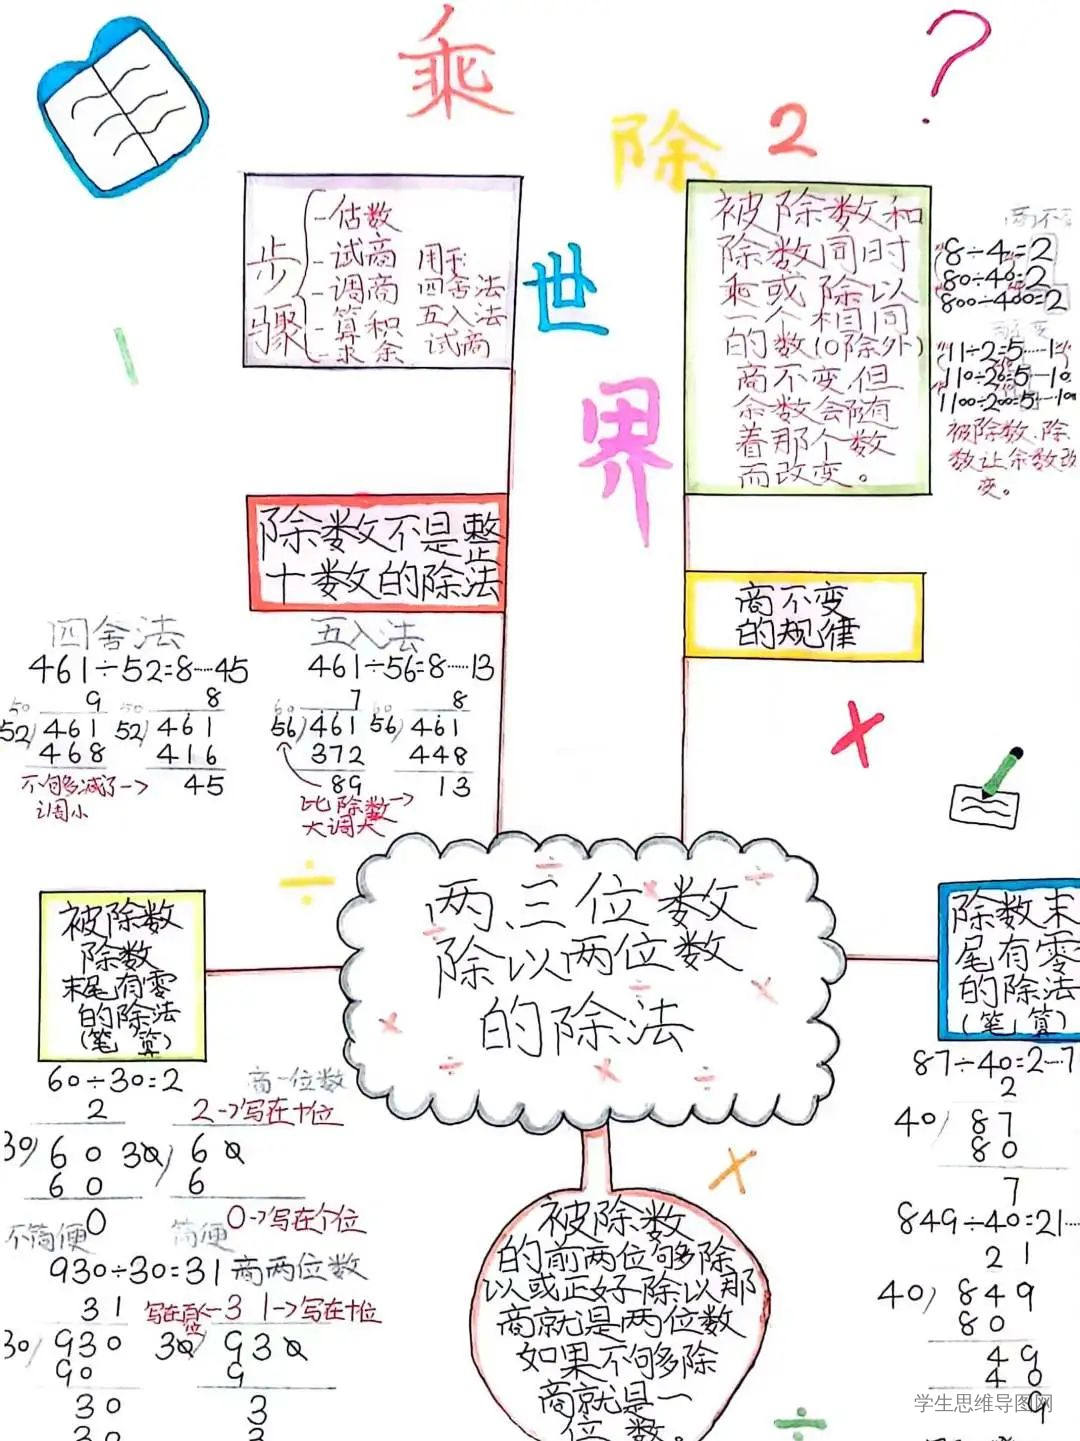 乘
除2
世
界
步骤
估数
试商
调商
算积
求余
用于
四舍法
五入法
试商
被除数和
除数同时
乘或除以
一个相同
的数(0除外)
商不变,但
余数会随
着那个数
而改变。
商不
8÷4=2
80÷40=2
800÷400=2
11÷2=5……1
110÷20=5…10
1100÷200=5…100
被除数、除
数让余数改
变。
除数不是整
十数的除法
商不变
的规律
四舍法
461÷52=8……45
50 9
52)461
468
不够减了→
调小
50 8
52)461
416
45
五入法
461÷56=8……13
60 7
56)461
372
89
比除数→
大调大
60 8
56)461
448
13
两、三位数
除以两位数
的除法
被除数
除数
末尾有零
的除法
(笔算)
60÷30=2
商一位数
2
30)60
60
0
不简便
2→写在十位
30)60
6
0→写在个位
简便
930÷30=31 商两位数
31
30)930
90
30
30
写在百位←31→写在十位
30)930
9
3
3
除数末
尾有零
的除法
(笔算)
87÷40=2…7
2
40)87
80
7
849÷40=21…
21
40)849
80
49
40
9
被除数
的前两位够除
以或正好除以那
商就是两位数
如果不够除
商就是一
位数。
学生思维导图网